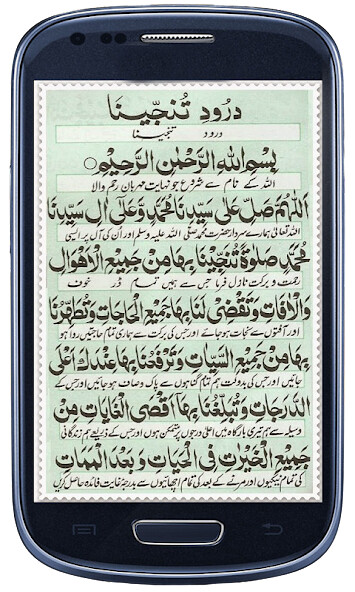 دُرُودِ تُنَجِّينَا
درود تنجینا
بِسْمِ اللّٰهِ الرَّحْمٰنِ الرَّحِيْمِ
اللہ کے نام سے شروع جو نہایت مہربان رحم والا
اَللّٰهُمَّ صَلِّ عَلٰى سَيِّدِنَا مُحَمَّدٍ وَّعَلٰى اٰلِ سَيِّدِنَا
اللہ تعالیٰ ہمارے سردار حضرت محمد صلی اللہ علیہ وسلم اور ان کی آل پر ایسی
مُحَمَّدٍ صَلٰوةً تُنَجِّيْنَا بِهَا مِنْ جَمِيْعِ الْاَهْوَالِ
رحمت و برکت نازل فرما جس سے ہمیں تمام ڈر خوف
وَالْاٰفَاتِ وَتَقْضِيْ لَنَا بِهَا جَمِيْعَ الْحَاجَاتِ وَتُطَهِّرُنَا
اور آفتوں سے نجات ہو جائے اور جس کی برکت سے ہماری تمام حاجتیں روا ہو
بِهَا مِنْ جَمِيْعِ السَّيِّاٰتِ وَتَرْفَعُنَا بِهَا عِنْدَكَ اَعْلَى
جائیں اور جس کی بدولت ہم تمام گناہوں سے پاک و صاف ہو جائیں اور جس کے
الدَّرَجَاتِ وَتُبَلِّغُنَا بِهَا اَقْصَى الْغَايَاتِ مِنْ
وسیلہ سے ہم تیری بارگاہ میں اعلیٰ درجوں پر متمکن ہوں اور جس کے ذریعے ہم زندگانی
جَمِيْعِ الْخَيْرَاتِ فِى الْحَيَاتِ وَبَعْدَ الْمَمَاتِ
کی تمام نیکیوں اور مرنے کے بعد کی تمام اچھائیوں سے بدرجہ غایت فائدہ حاصل کریں